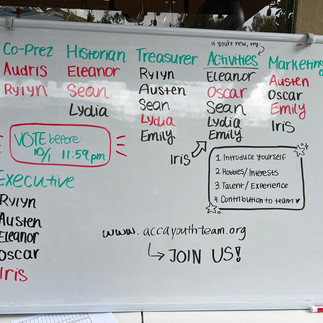 if you're new, try
Co-Prez
Audris
Ryiyn
Historian
Eleanor
Sean
Lydia
Treasurer
Ryiyn
Austen
Sean
Lydia
Emily
Activities
Eleanor
Oscar
Sean
Lydia
Emily
Iris
Marketing
Austen
Oscar
Emily
Iris
VOTE before
10/1 11:59 pm
1. Introduce yourself
2. Hobbies/Interests
3. Talent/Experience
4. Contribution to team
Executive
Ryiyn
Austen
Eleanor
Oscar
Iris
www.accayouth-team.org
JOIN US!